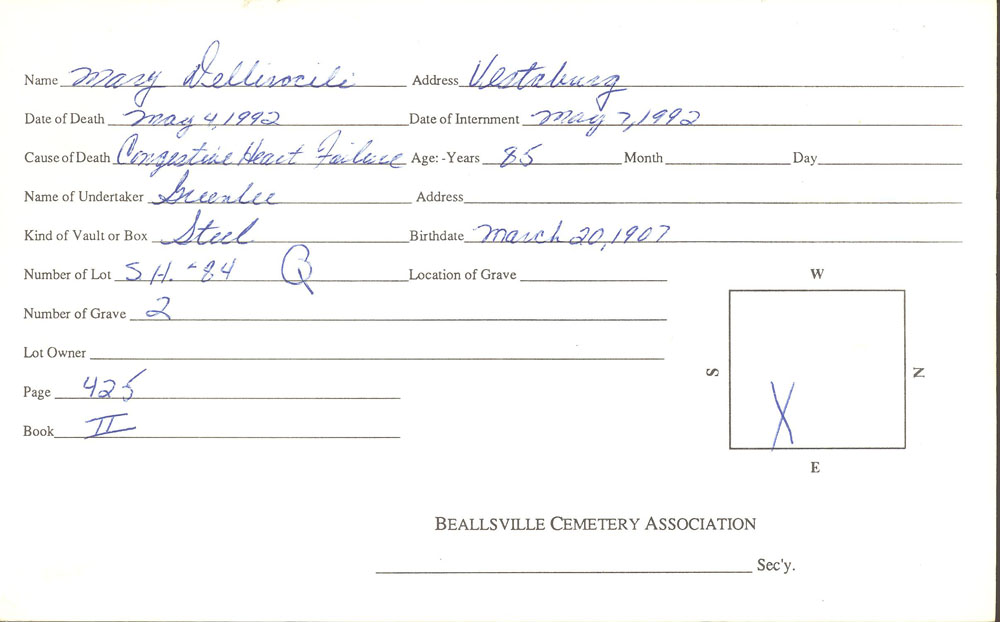 Name Mary Address Vestaburg
Date of Death May 4, 1992 Date of Internment May 7, 1992
Cause of Death Congestive Heart Failure Age:-Years 85 Month Day
Name of Undertaker Greenlee Address
Kind of Vault or Box Steel Birthdate March 20, 1907
Number of Lot S H. -84 Q Location of Grave
W
Number of Grave 2
Lot Owner
S N
Page 425
X
Book II
E
BEALLSVILLE CEMETERY ASSOCIATION
Sec'y.